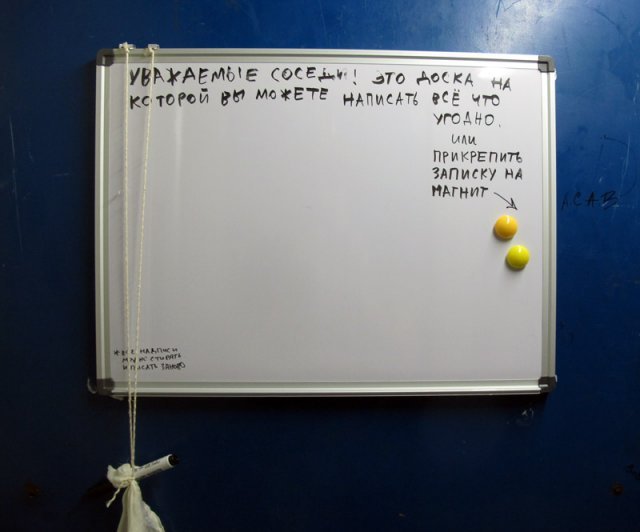 УВАЖАЕМЫЕ СОСЕДИ! ЭТО ДОСКА НА
КОТОРОЙ ВЫ МОЖЕТЕ НАПИСАТЬ ВСЁ ЧТО
УГОДНО.
ИЛИ
ПРИКРЕПИТЬ
ЗАПИСКУ НА
МАГНИТ
ACAB
* ВСЕ НАДПИСИ
МОЖНО СТИРАТЬ
И ПИСАТЬ ЗАНОВО